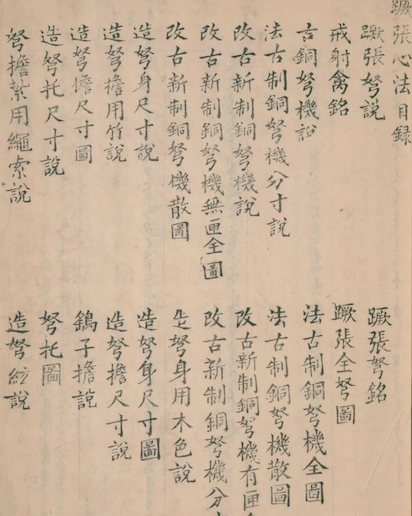 蹶張心法目錄
蹶張弩說
蹶張弩銘
戒射禽銘
蹶張全弩圖
古銅弩機說
法古制銅弩機全圖
法古制銅弩機分寸說
法古制銅弩機散圖
改古新制銅弩機說
改古新制銅弩機有匣
改古新制銅弩機無匣全圖
改古新制銅弩機分
改古新制銅弩機散圖
造弩身用木色說
造弩身尺寸說
造弩身尺寸圖
造弩擔用竹說
造弩擔尺寸說
造弩擔尺寸圖
子擔說
造弩托尺寸說
弩托圖
弩擔紮用繩索說
造弩紘說